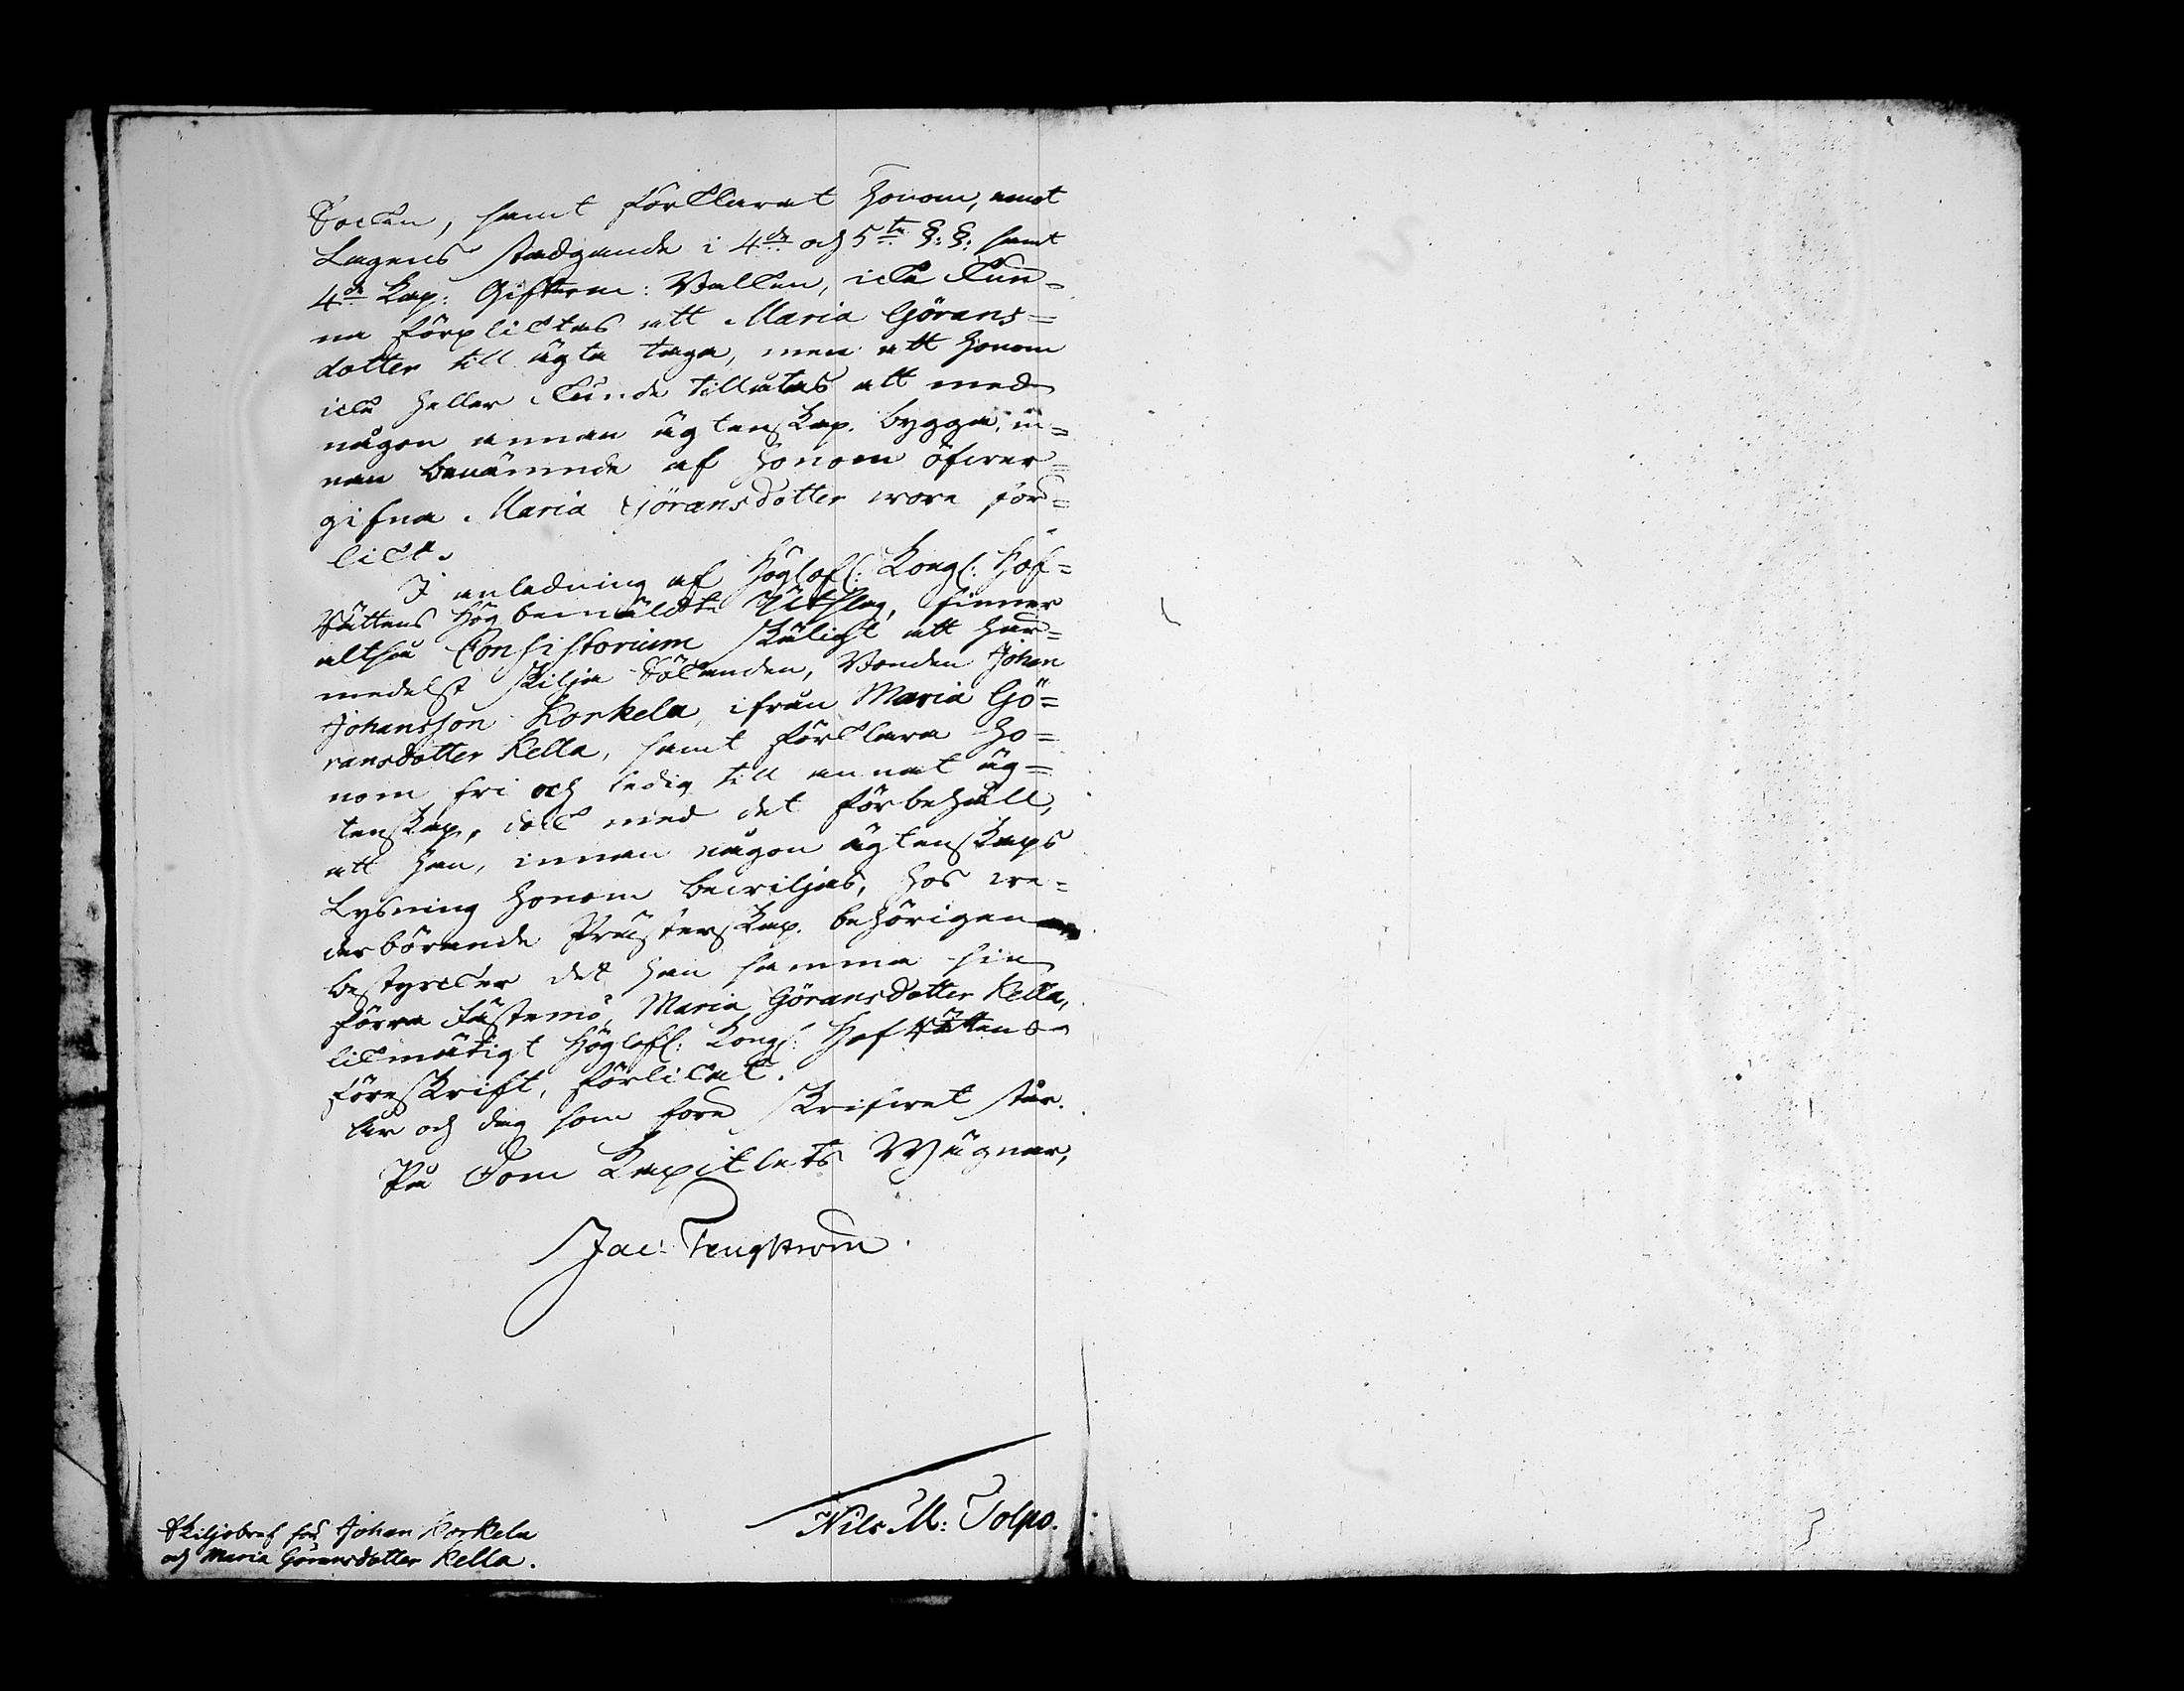 Socken, samt förklarat honom, emot
Lagens stadgande i 4de och 5te §:§: samt
4de Kap: Gifterm: Balken, icke kun-
na förpliktas att Maria Görans=
dotter till ägta taga, men att honom
icke heller kunde tillåtas att med
någon annan ägtenskap bygga, in=
nan benämnde af honom öfwer=
gifna Maria Göransdotter wore för=
likt.
I anledning af Höglofl: Kongl: Hof=
Rättens Högbemälte Utslag, finner
altså Consistorium skäligt att här=
medelst skilja Sökanden, Bonden Johan
Johansson Korkela, ifrån Maria Gö=
ransdotter Kella, samt förklara ho=
nom fri och ledig till annat äg=
tenskap, dock med det förbehåll,
att han, innan någon ägtenskaps
Lysning honom bewiljas, hos we=
derbörande Prästerskap behörigen
bestyrker det han samma sin
förra Fästemö, Maria Göransdotter Kella,
likmätigt Höglofl: Kongl: HofRättens
föreskrift, förlikat.
År och dag som före skrifwet står.
På Dom Kapitlets Wägnar,
Jac: Tengström.
Nils M: Tolpo.
Skiljobref för Johan Korkela
och Maria Göransdotter Kella.